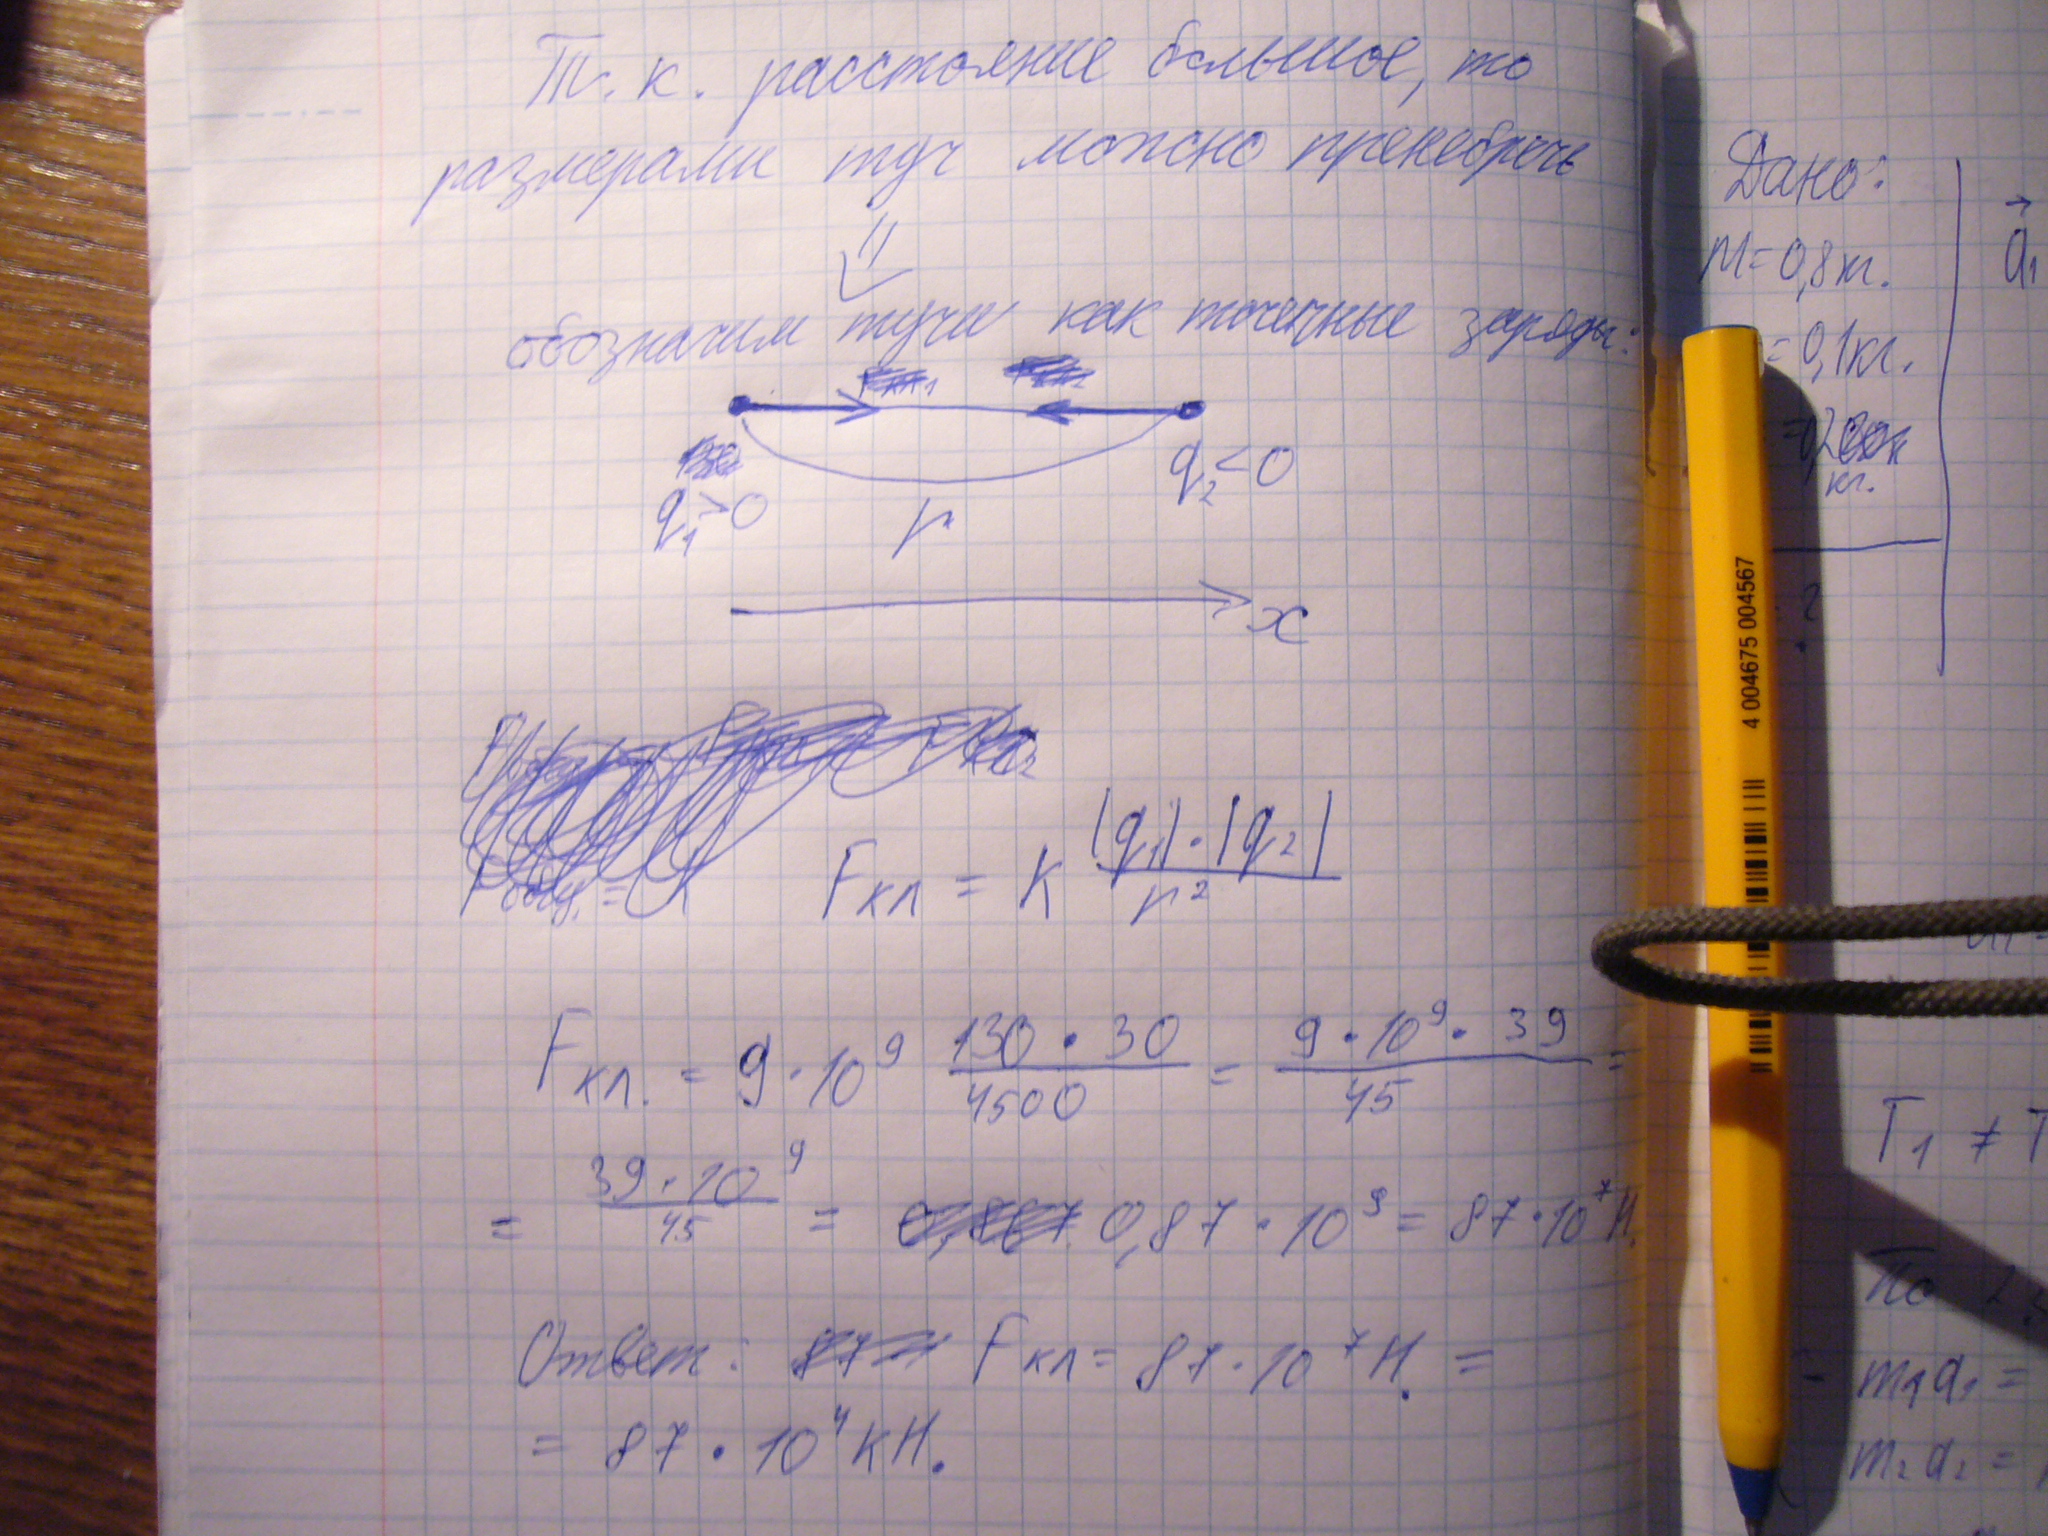 Т. к. расстояние большое, то
размерами туч можно пренебречь
⇓
обозначим тучи как точечные заряды:
q₁>0
q₂<0
r
x
Fкл = K |q₁|·|q₂| / r²
Fкл. = 9·10⁹ 130·30 / 4500 = 9·10⁹·39 / 45 =
= 39·10⁹ / 45 = 0,87·10⁹ = 87·10⁷Н.
Ответ: Fкл = 87·10⁷Н. =
= 87·10⁴кН.
Дано:
M=0,8кг.
=0,1кг.
кг.
?
a₁
T₁ ≠ T
По 2
m₁a₁=
m₂a₂=
4 004675 004567